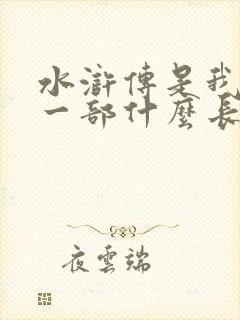 水滸傳是我
一部什麼長
夜雲端